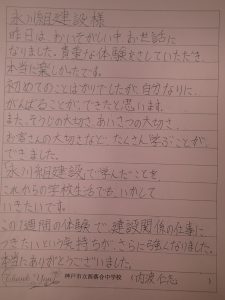 永川組建設様
昨日は、おいそがしい中お世話に
なりました。貴重な体験をさしていただき、
本当に楽しかったです。
初めてのことばかりでしたが、自分なりに、
がんばることが、できたと思います。
また、そうじの大切さ、あいさつの大切さ、
お客さんの大切さなど、たくさん学ぶことが、
できました。
「永川組建設」で学んだことを
これからの学校生活でも、いかして
いきたいです。
この1週間の体験で、建設関係の仕事に
つきたいという気持ちが、さらに強くなりました。
本当にありがとうございました。
神戸市立西落合中学校